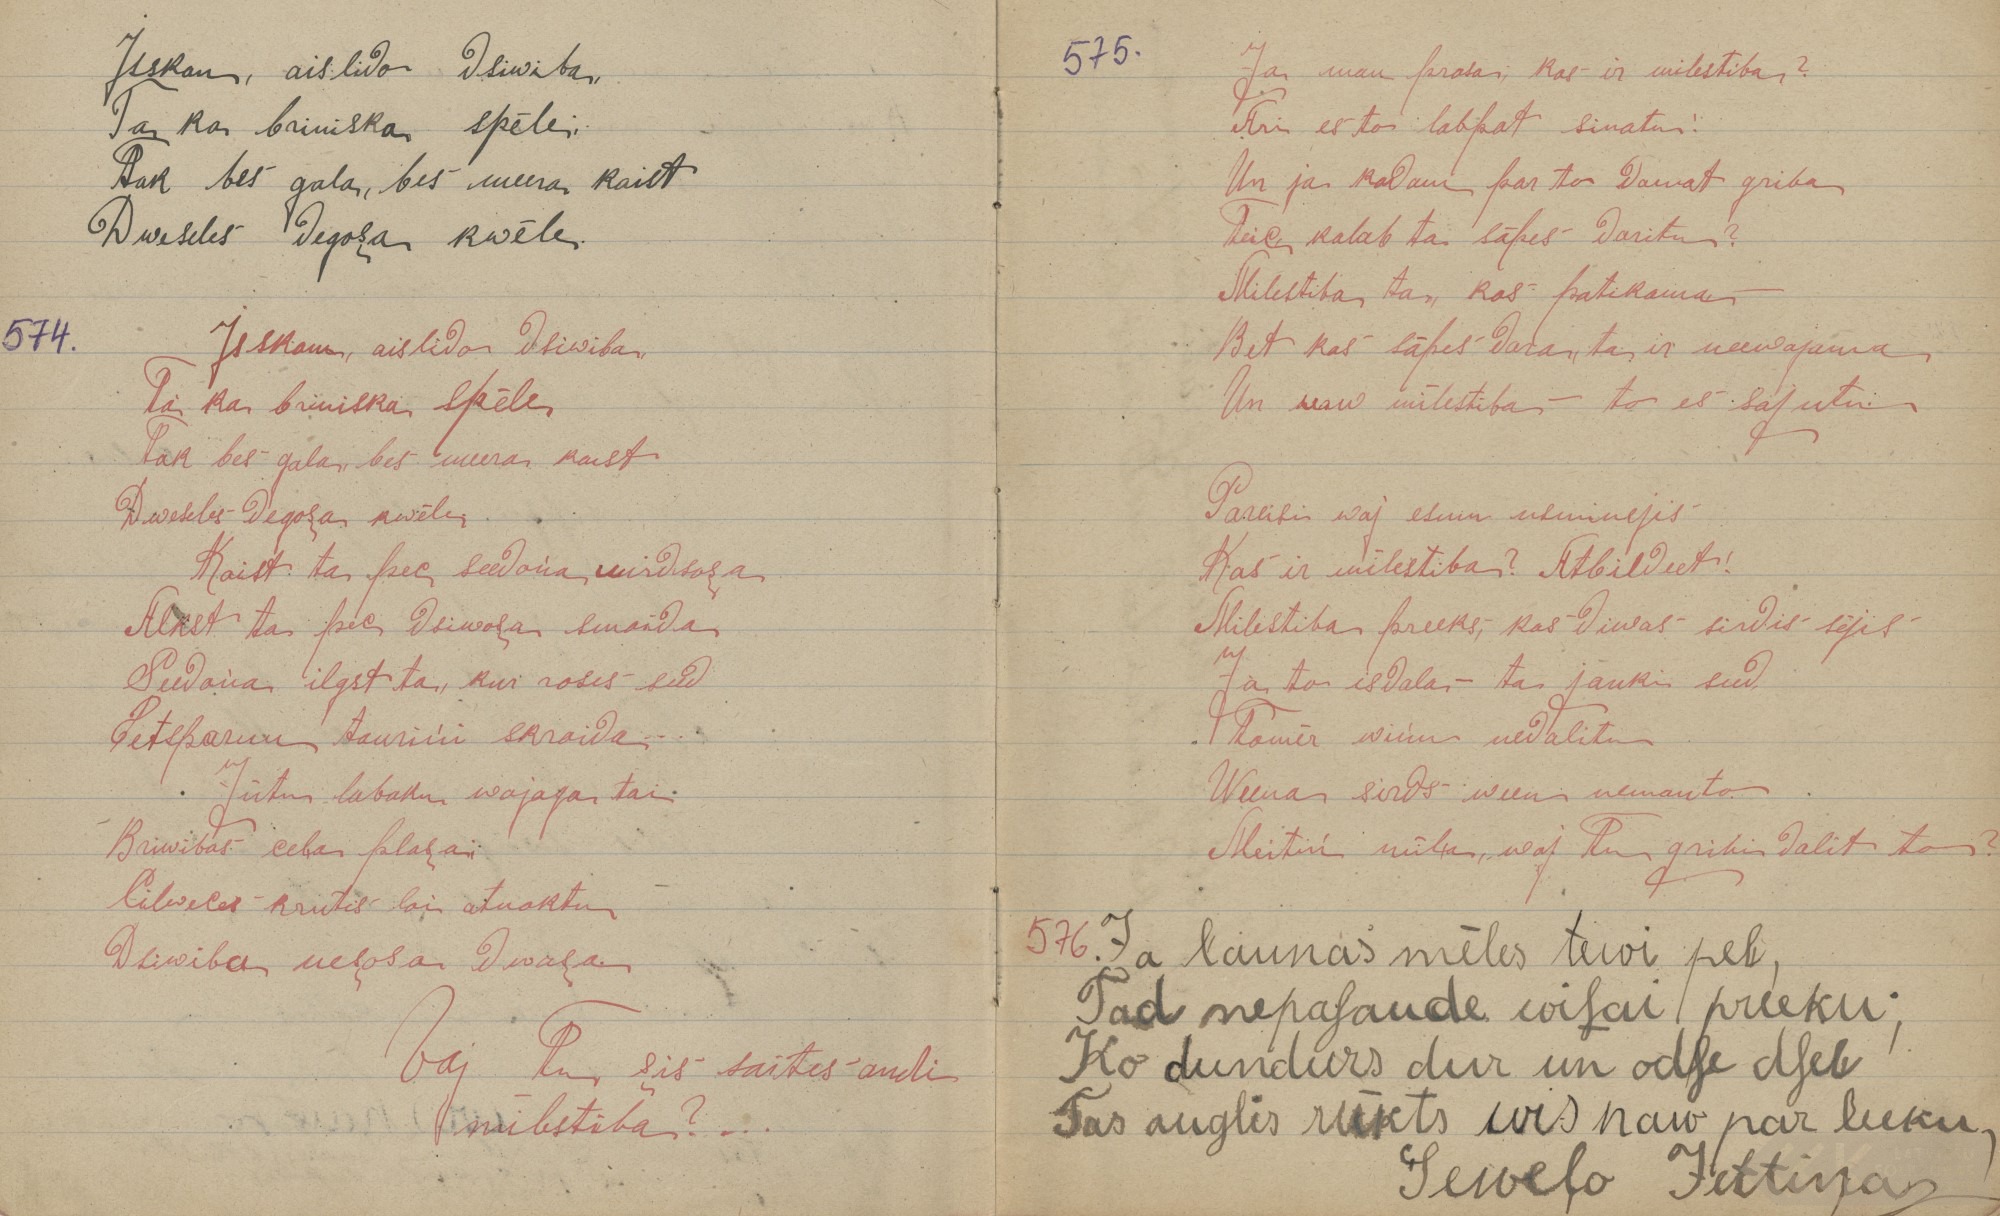 Isskan, aislido dsiwiba,
Ta ka briniska spēle,
Tak bes gala, bes meera kaist
Dweseles degoşa kwēle.
574.
Isskan, aislido dsiwiba,
Ta ka briniska spēle,
Tak bes gala, bes meera kaist
Dweseles degoşa kwēle,
Kaist ta pec seedoņa mirdsoşa
Alkst ta pec dsiwoşa smaida
Seedoņa ilgst ta, kur roses seed
Eetsparnu tauriņi skraida...
Jūtu labaku wajaga tai
Briwibas ceļa plaşai
Cilweces krutis lai atnaktu
Dsiwiba neşosa dwaşa
Vaj Tu şis saites audi
mīlestiba?...
575.
Ja man prasa, kas ir milestiba?
Ari es to labpat sinatu!
Un ja kadam par to dawat griba
Teic, kalab ta sāpes daritu?
Milestiba ta, kas patikama
Bet kas sāpes dara, ta ir neewajama
Un naw mīlestiba – to es sajutu
Pareisi waj esmu usminejis
Kas ir mīlestiba? Atbildeet!
Milestiba preeks, kas diwas sirdis sējis
Ja to isdala – ta jauki seed
Tomēr wiņu nedalitu
Weena sirds ween nemanto
Meitiņ mīļa, waj Tu gribi dalit to?
576. Ja ļaunas mēles tewi peļ,
Tad nepaſaude wiſai preeku;
Ko dundurs dur un odſe dſeļ
Tas auglis rūkts wis naw par leeku,
Seweſo Jettiņa